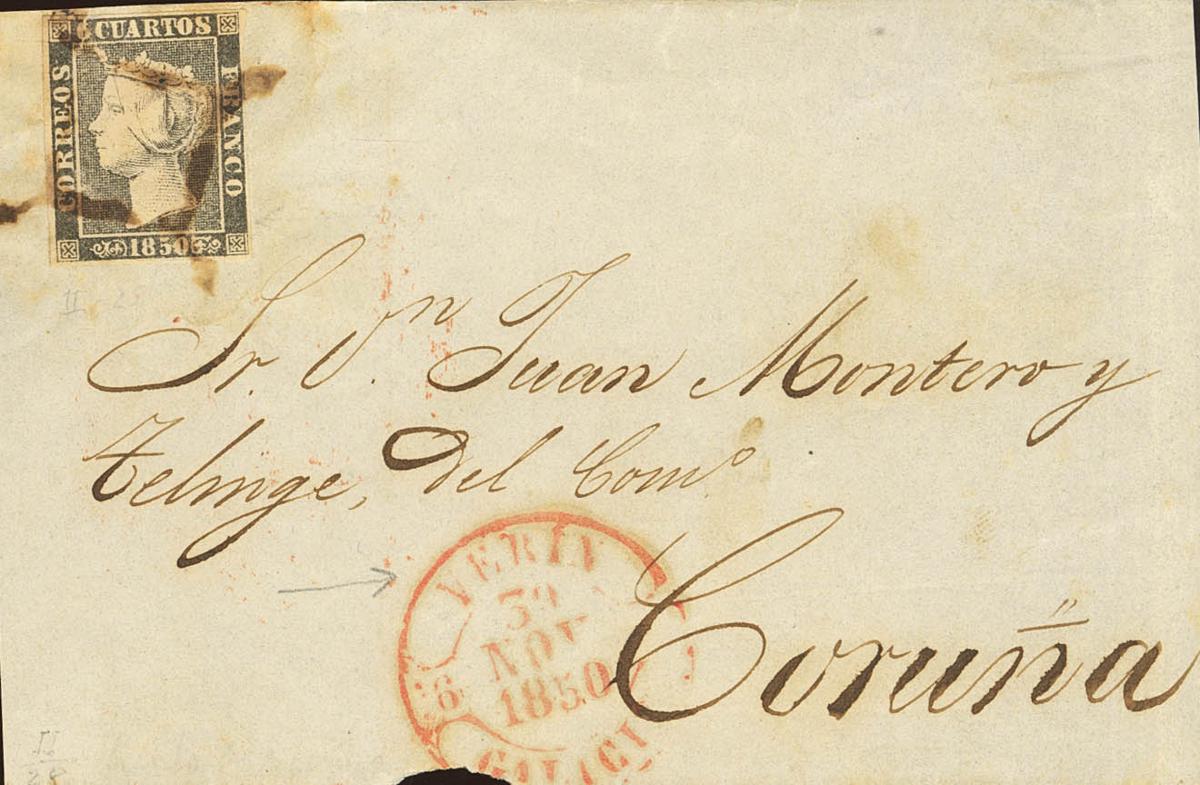 6 CUARTOS
CORREOS
FRANCO
1850
II 28
Sr. Dn. Juan Montero y
Telinge, del Como.
Coruña
VERIN
30
NOV
1850
6
GALICI
II
28